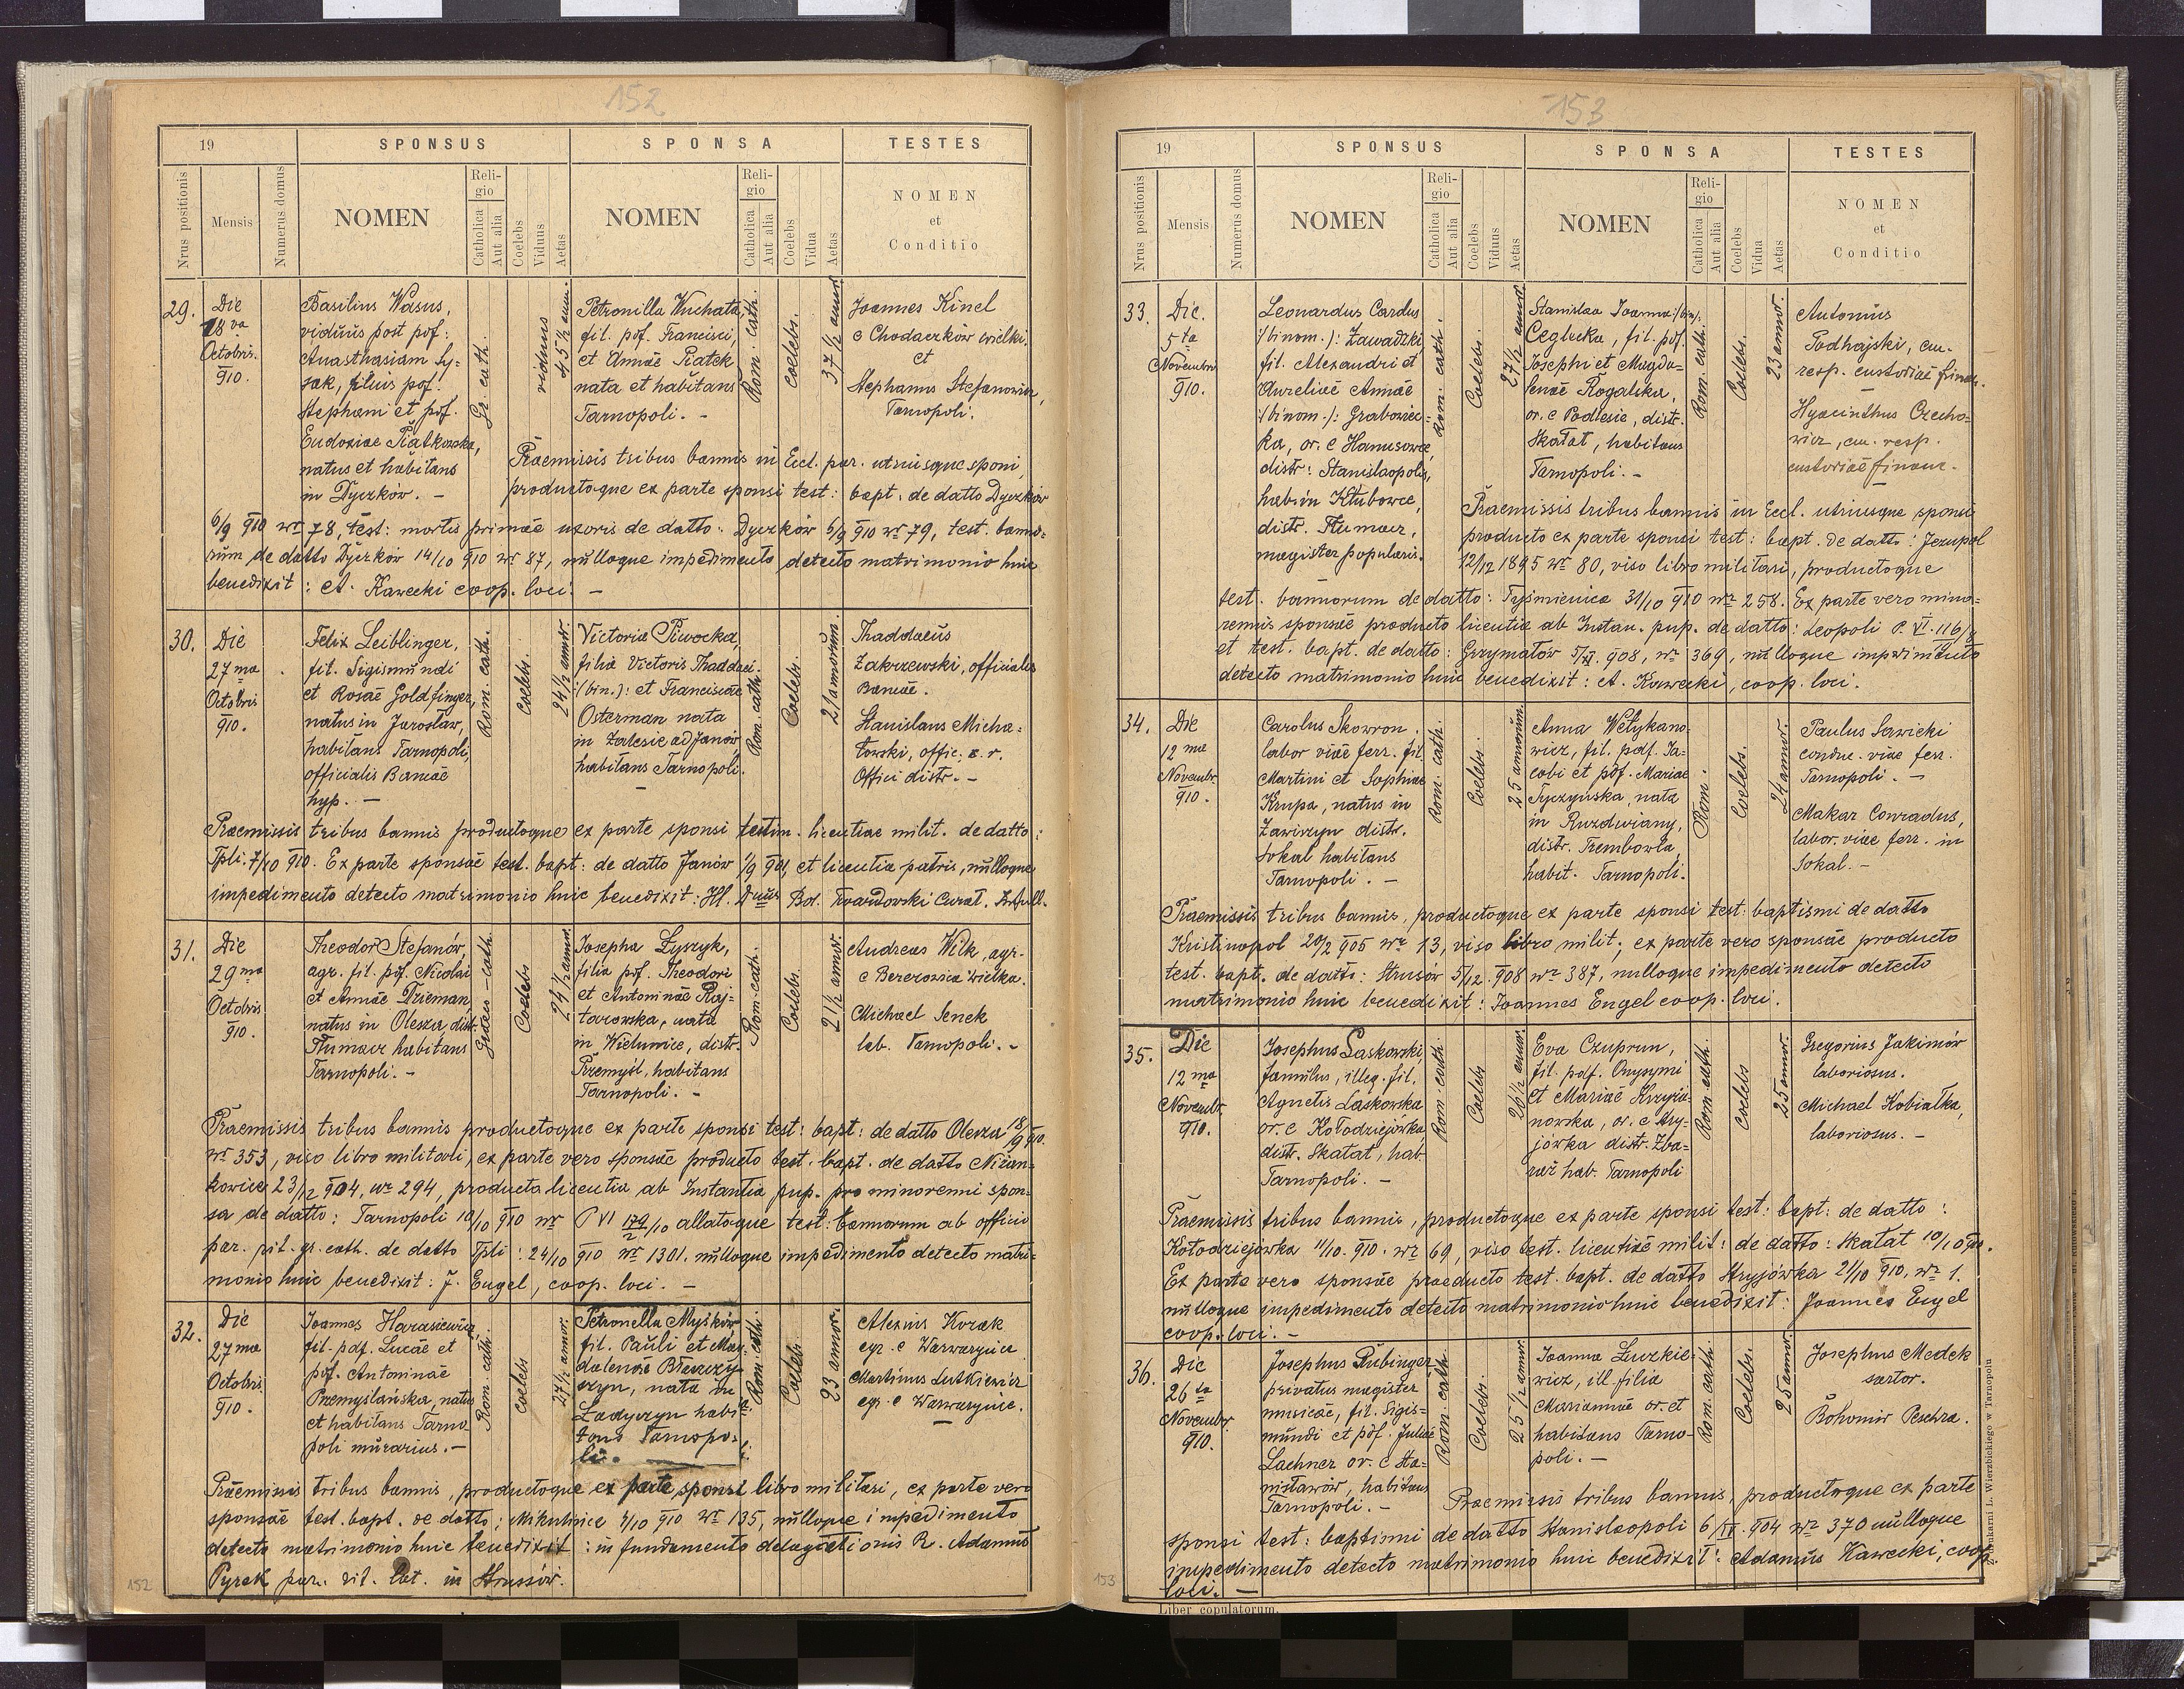 152
19
SPONSUS
SPONSA
TESTES
Nrus positionis
Mensis
Numerus domus
NOMEN
Religio
Catholica
Aut alia
Coelebs
Viduus
Aetas
NOMEN
Religio
Catholica
Aut alia
Coelebs
Vidua
Aetas
NOMEN
et
Conditio
29.
Die
18va
Octobris.
910.
Basilius Wasus,
viduus post pof:
Anasthasiam Sy=
sak, filius pof.
Stephani et pof.
Eudoxiae Piatkowska,
natus et habitans
in Dyczków. –
Gr. cath.
viduus
45 1/2 ann.
Petronilla Wuchata,
fil. pof. Francisci,
et Annae Piatek
nata et habitans
Tarnopoli. –
Rom. cath.
Coelebs.
37 1/2 annor.
Joannes Kinel
e Chodaczków wielki.
et
Stephanus Stefanowicz,
Tarnopoli.
Praemissis tribus bannis in Eccl. par. utriusque sponi,
productoque ex parte sponsi test: bapt. de datto Dyczków
6/9 910 nr 78, test: mortis primae uxoris de datto: Dyczków 6/9 910 nr 79, test. banno=
rum de datto Dyczków 14/10 910 nr 87, nulloque impedimento detecto matrimonio huic
benedixit: A. Kawecki coop. loci. –
30.
Die
27ma
Octobris
910.
Felix Leiblinger,
fil. Sigismundi
et Rosae Goldfinger,
natus in Jarosław,
habitans Tarnopoli,
officialis Bancae
hyp. –
Rom. cath.
Coelebs.
24 1/2 annor.
Victoria Piwocka,
filia Victoris Thaddaei
/bin.): et Franciscae
Osterman nata
in Zalesie ad Janów,
habitans Tarnopoli.
Rom. cath.
Coelebs.
21 annorum.
Thaddaeus
Zakrzewski, officialis
Bancae.
Stanislaus Micha=
łowski, offic. c. r.
Offici distr. –
Praemissis tribus bannis productoque ex parte sponsi testim. licentiae milit. de datto:
Tpli. 7/10 910. Ex parte sponsae test. bapt: de datto Janów 1/9 901, et licentia patris, nulloque
impedimento detecto matrimonio huic benedixit: Hl. Dnus Bol. Twardowski Curat.
31.
Die
29ma
Octobris
910.
Theodor Stefanów,
agr. fil. pof. Nicolai
et Annae Dzieman,
natus in Olesza, distr.
Tłumacz habitans
Tarnopoli. –
Graeco-cath.
Coelebs
24 1/2 annor.
Josepha Łyszyk,
filia pof. Theodori
et Antoninae Raj=
tarowska, nata
in Wielunice, distr.
Przemyśl, habitans
Tarnopoli. –
Rom. cath.
Coelebs.
21 1/2 annor.
Andreas Wilk, agr.
e Berezowica wielka.
Michael Senek
lab. Tarnopoli. –
Praemissis tribus bannis productoque ex parte sponsi test: bapt: de datto Olesza 18/9 910.
nr 353, viso libro militari, ex parte vero sponsae producto test. bapt. de datto Nizan=
kowice 23/12 904, nr 294, producta licentia ab Instantia pup. pro minorenni spon=
sa de datto: Tarnopoli 10/10 910 nr P VI 179/2/10 allatoque test: bannorum ab officio
par. rit. gr. cath. de datto Tpli: 24/10 910 nr 1301. nulloque impedimento detecto matri=
monio huic benedixit: J. Engel, coop. loci. –
32.
Die
27ma
Octobris
910.
Joannes Harasiewicz,
fil. pof. Lucae et
pof. Antoninae
Przemyslańska, natus
et habitans Tarno=
poli murarius. –
Rom. cath.
Coelebs
27 1/2 annor.
Petronella Myśków
fil. Pauli et Mag=
dalenae
szyn, nata in
Ładyczyn habi=
tans Tarnopo=
li.
Rom. cath.
Coelebs.
23 annor.
Alexius Korak
agr. e Warwaryńce
Martinus Lutkiewicz
agr. e Warwaryńce.
Praemissis tribus bannis, productoque ex parte sponsi libro militari, ex parte vero
sponsae test. bapt. de datto: Mikulińce 4/10 910 nr 135, nulloque impedimento
detecto matrimonio huic benedixit: in fundamento delegationis R. Adamus
Pyrek par. rit. lat. in Strussów.
152
153
19
SPONSUS
SPONSA
TESTES
Nrus positionis
Mensis
Numerus domus
NOMEN
Religio
Catholica
Aut alia
Coelebs
Viduus
Aetas
NOMEN
Religio
Catholica
Aut alia
Coelebs
Vidua
Aetas
NOMEN
et
Conditio
33.
Die.
5ta
Novembris
910.
Leonardus Carolus
/binom.): Zawadzki,
fil. Alexandri et
Aureliae Annae
/binom.): Grabowiec=
ka, or. e Hanusowce,
distr: Stanislaopolis,
hab. in Kłubowce,
distr. Tłumacz,
magister popularis.
Rom. cath.
Coelebs.
27 1/2 annor.
Stanislaa Joanna /bin.):
Ceglecka, fil. pof.
Josephi et Magda=
lenae Rogalska,
or. e Podlesie, distr.
Skałat, habitans
Tarnopoli. –
Rom. cath.
Coelebs.
23 annor.
Antonius
Podhajski, em.
resp. custodiae finan.
Hyacinthus Czecho=
wicz, em. resp.
custodiae financ.
Praemissis tribus bannis in Eccl. utriusque sponsi
producto ex parte sponsi test: bapt. de datto: Jezupol
12/12 1895 nr 80, viso libro militari, productoque
test. bannorum de datto: Tyśmienica 31/10 910 nr 258. Ex parte vero mino=
rennis sponsae producto licentia ab Instan. pup. de datto: Leopoli P. VI. 116/8
et test. bapt. de datto: Grzymałów 5/XI. 908, nr 369, nulloque impedimento
detecto matrimonio huic benedixit: A. Kawecki, coop. loci.
34.
Die
12ma
Novembr.
910.
Carolus Skowron,
labor viae ferr. fil.
Martini et Sophiae
Krupa, natus in
Zawiszyn distr.
Sokal habitans
Tarnopoli. –
Rom. cath.
Coelebs.
25 annorum.
Anna Wełykano=
wicz, fil. pof. Ja=
cobi et pof. Mariae
Tyczyńska, nata
in Ruzdwiany,
distr. Trembowla
habit. Tarnopoli.
Rom.
Coelebs.
24 annor.
Paulus Sawicki
conduc. viae ferr.
Tarnopoli. –
Makar Conradus,
labor. viae ferr. in
Sokal. –
Praemissis tribus bannis, productoque ex parte sponsi test: baptismi de datto
Kristinopol 20/2 905 nr 13, viso libro milit; ex parte vero sponsae producto
test. bapt. de datto: Strusów 5/12 908 nr 387, nulloque impedimento detecto
matrimonio huic benedixit: Joannes Engel coop. loci.
35.
Die
12ma
Novembr.
910.
Josephus Laskowski,
famulus, illeg. fil.
Agnetis Laskowska
or. e Kołodziejówka
distr. Skałat, hab.
Tarnopoli. –
Rom. cath.
Caelebs
26 1/2 annor.
Eva Czuprun,
fil. pof. Onysymi
et Mariae Krzyża=
nowska, or. e Stry=
jówka distr. Zba=
raż hab. Tarnopoli
Rom. cath.
Coelebs
25 annor.
Gregorius Jakimów
laboriosus.
Michael Kobiałka,
laboriosus. –
Praemissis tribus bannis, productoque ex parte sponsi test: bapt: de datto:
Kołodziejówka 11/10. 910. nr 69, viso test. licentiae milit: de datto: Skałat 10/10 910.
Ex parte vero sponsae praeducto test. bapt. de datto Stryjówka 21/10 910, nr 1.
nulloque impedimento detecto matrimonio huic benedixit: Joannes Engel
coop. loci. –
36.
Die
26ta
Novembr.
910.
Josephus Rubinger
privatus magister
musicae, fil. Sigis=
mundi et pof. Juliae
Lachner or. e Sta=
nisławów, habitans
Tarnopoli. –
Rom. cath.
Coelebs.
25 1/2 annor.
Joanna Łuczkie=
wicz, ill. filia
Mariannae or. et
habitans Tarno=
poli. –
Rom. cath.
Coelebs.
25 annor.
Josephus Medek
sartor.
Bohomir Peschra.
Praemissis tribus bannis, productoque ex parte
sponsi test: baptismi de datto Stanislaopoli 6/IX. 904 nr 370 nulloque
impedimento detecto matrimonio huic benedixit: Adamus Kawecki, coop.
loci. –
153
Liber copulatorum.
Z drukarni L. Wierzbickiego w Tarnopolu